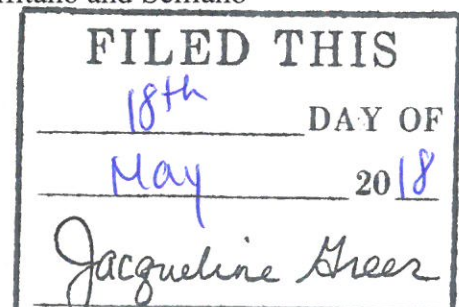 and
FILED THIS
18th DAY OF
May 2018
Jacqueline Greer